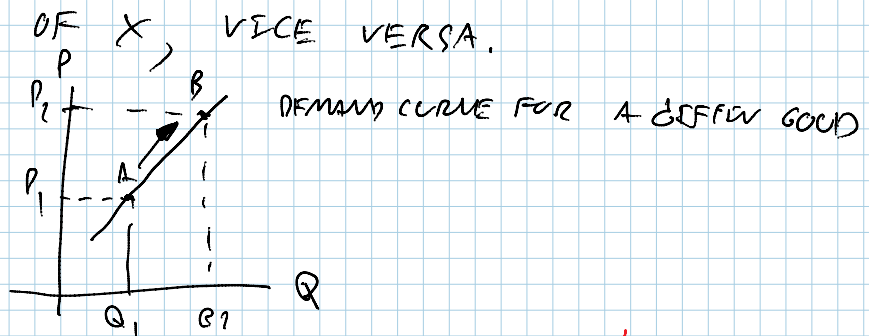 OF X, VICE VERSA.
P
B
P2
DEMAND CURVE FOR A GIFFEN GOOD
A
P1
Q
Q1